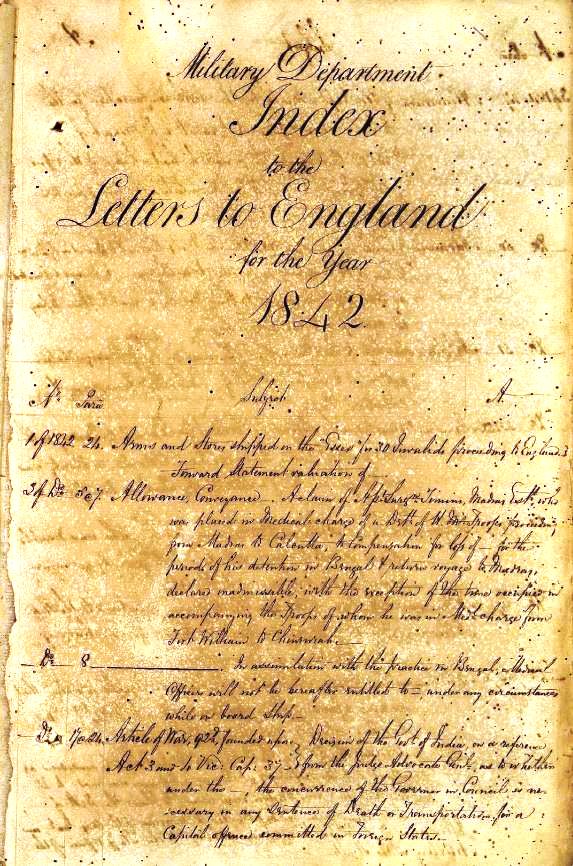 Military Department
Index
to the
Letters to England
for the Year
1842.
No. Para Subject A
1 of 1842 24. Arms and Stores shipped on the "Essex" for 30 Invalids proceeding to England.
Forward Statement valuation of
3 of Do. 5 @ 7 Allowance, Conveyance. A claim of Asst. Surgn. Madras Estt. who
was placed in Medical charge of a Dett. of H. M. Troops proceeding
from Madras to Calcutta, to compensation for loss of — for the
periods of his detention in Bengal & return voyage to Madras,
declared inadmissible, with the exception of the time occupied in
accompanying the Troops of whom he was in Medl. charge from
Fort William to Chinsurah.—
— Do — 8 — . In assimilation with the practice in Bengal, Medical
Officers will not be hereafter entitled to — under any circumstances
while on board Ship —
Do. 17 @ 24. Article of War, founded upon Decision of the Govt. of India, on a reference
Act 3 and 4 Vic: Cap. 37 — from the Judge Advocate Genl. as to whether
under the —, the concurrence of the Governor in Council is ne-
cessary in any Sentence of Death or Transportation for a
Capital offence committed in Foreign States.—